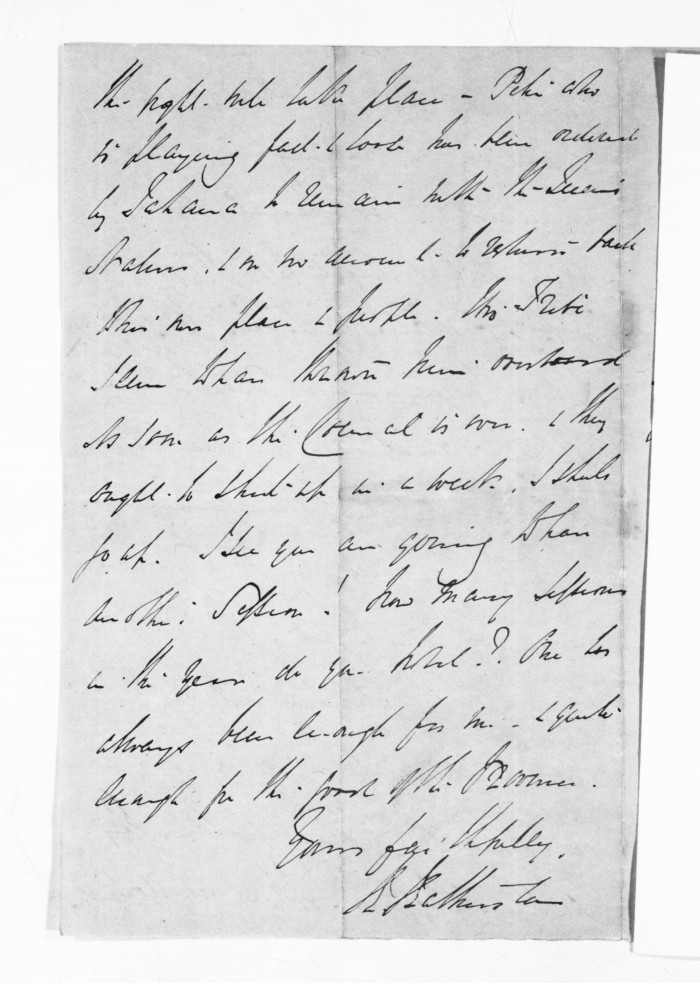 the fight will take place – Pehi who
is playing fast & loose has been ordered
by Tahana to remain with the Queen's
Natives, & on no account to return back
to his own place & people. His Tribe
seem to have thrown him overboard
As soon as the Council is over & they
ought to shut up in a week, I shall
go up. I see you are going to have
another Session! How many Sessions
in the year do you hold? One has
always been enough for me – & quite
enough for the good of the Province.
Yours faithfully,
I Featherston